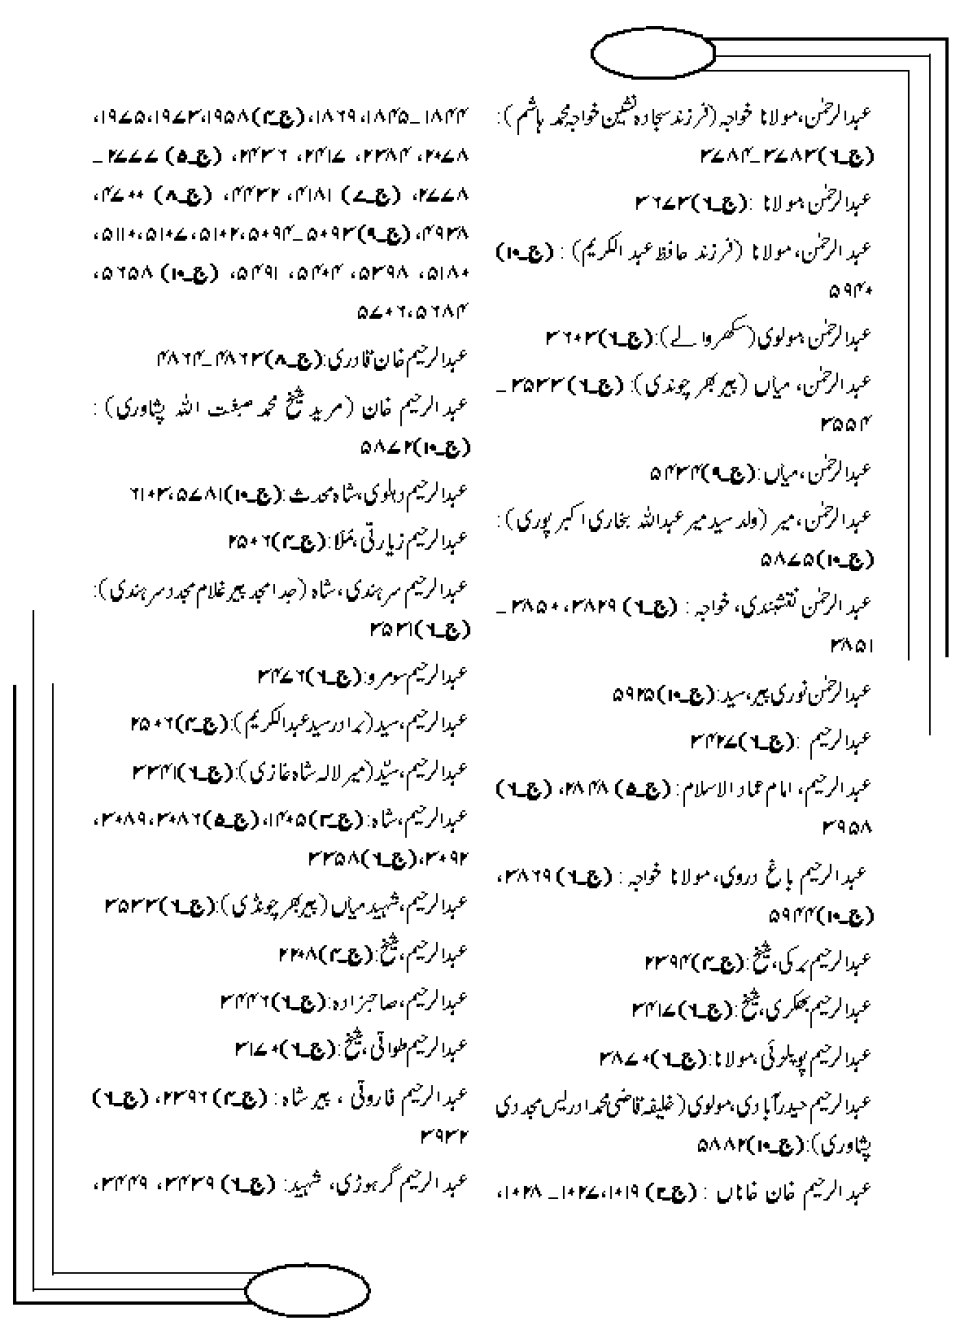 عبدالرحمٰن، مولانا خواجہ (فرزند سجادہ نشین خواجہ محمد ہاشم):
(ج۔۶)۳۷۸۳۔۳۷۸۴
عبدالرحمٰن، مولانا :(ج۔۶)۳۶۷۳
عبدالرحمٰن، مولانا (فرزند حافظ عبد الکریم) : (ج۔۱۰)
۵۹۴۰
عبدالرحمٰن، مولوی (سکھر والے):(ج۔۶)۳۶۰۳
عبدالرحمٰن، میاں (پیر بھر چونڈی): (ج۔۶)۳۵۳۳۔
۳۵۵۴
عبدالرحمٰن، میاں:(ج۔۹)۵۴۳۴
عبدالرحمٰن، میر (ولد سید میر عبداللہ بخاری اکبر پوری):
(ج۔۱۰)۵۸۷۵
عبد الرحمٰن نقشبندی، خواجہ : (ج۔۶) ۳۸۲۹، ۳۸۵۰۔
۳۸۵۱
عبدالرحمٰن نوری پیر، سید:(ج۔۱۰)۵۹۲۵
عبدالرحیم :(ج۔۶)۳۴۲۷
عبدالرحیم، امام عماد الاسلام: (ج۔۵) ۲۸۴۸، (ج۔۶)
۳۹۵۸
عبدالرحیم باغ دروی، مولانا خواجہ : (ج۔۶) ۳۸۶۹،
(ج۔۱۰)۵۹۴۴
عبدالرحیم برکی، شیخ:(ج۔۴)۲۳۹۴
عبدالرحیم بھکری، شیخ:(ج۔۶)۳۴۱۷
عبدالرحیم پوپلزئی، مولانا:(ج۔۶)۳۸۷۰
عبدالرحیم حیدرآبادی، مولوی (خلیفہ قاضی محمد ادریس مجددی
پشاوری):(ج۔۱۰)۵۸۸۲
عبد الرحیم خان خاناں : (ج۔۲) ۱۰۱۹، ۱۰۲۷ ۔ ۱۰۲۸،
۱۸۴۴۔ ۱۸۴۵، ۱۸۶۹، (ج۔۳)۱۹۵۸، ۱۹۷۳، ۱۹۷۵،
۲۰۷۸، ۲۳۸۴، ۲۴۱۷، ۲۴۳۶، (ج۔۵) ۲۷۷۷۔
۲۷۷۸، (ج۔۷) ۴۱۸۱، ۴۴۳۲، (ج۔۸) ۴۷۰۰،
۴۹۳۸، (ج۔۹)۵۰۹۳۔ ۵۰۹۴، ۵۱۰۲، ۵۱۰۷، ۵۱۱۰،
۵۱۸۰، ۵۳۹۸، ۵۴۰۴، ۵۴۹۱، (ج۔۱۰) ۵۶۵۸،
۵۶۸۴، ۵۷۰۶
عبدالرحیم خان قادری:(ج۔۸)۴۸۶۳۔۴۸۶۴
عبد الرحیم خان (مرید شیخ محمد صبغت اللہ پشاوری) :
(ج۔۱۰)۵۸۷۲
عبدالرحیم دہلوی، شاہ محدث:(ج۔۱۰)۵۷۸۱، ۶۱۰۳
عبدالرحیم زیارتی، مُلّا:(ج۔۴)۲۵۰۶
عبدالرحیم سرہندی، شاہ (جد امجد پیر غلام مجدد سرہندی):
(ج۔۶)۳۵۳۱
عبدالرحیم سومرو:(ج۔۶)۳۴۷۶
عبدالرحیم، سید (برادر سید عبدالکریم):(ج۔۴)۲۵۰۶
عبدالرحیم، سیّد (میر لالہ شاہ غازی):(ج۔۶)۳۳۴۱
عبدالرحیم، شاہ:(ج۔۳)۱۴۰۵، (ج۔۵)۳۰۸۶، ۳۰۸۹،
۳۰۹۲، (ج۔۶)۳۳۵۸
عبدالرحیم، شہید میاں (پیر بھر چونڈی):(ج۔۶)۳۵۳۳
عبدالرحیم، شیخ:(ج۔۴)۲۲۰۸
عبدالرحیم، صاحبزادہ:(ج۔۶)۳۴۴۶
عبدالرحیم طوافی، شیخ:(ج۔۶)۳۱۷۰
عبدالرحیم فاروقی ، پیر شاہ: (ج۔۴) ۲۳۹۶، (ج۔۶)
۳۹۳۲
عبد الرحیم گرہوڑی، شہید: (ج۔۶) ۳۴۳۹، ۳۴۴۹،